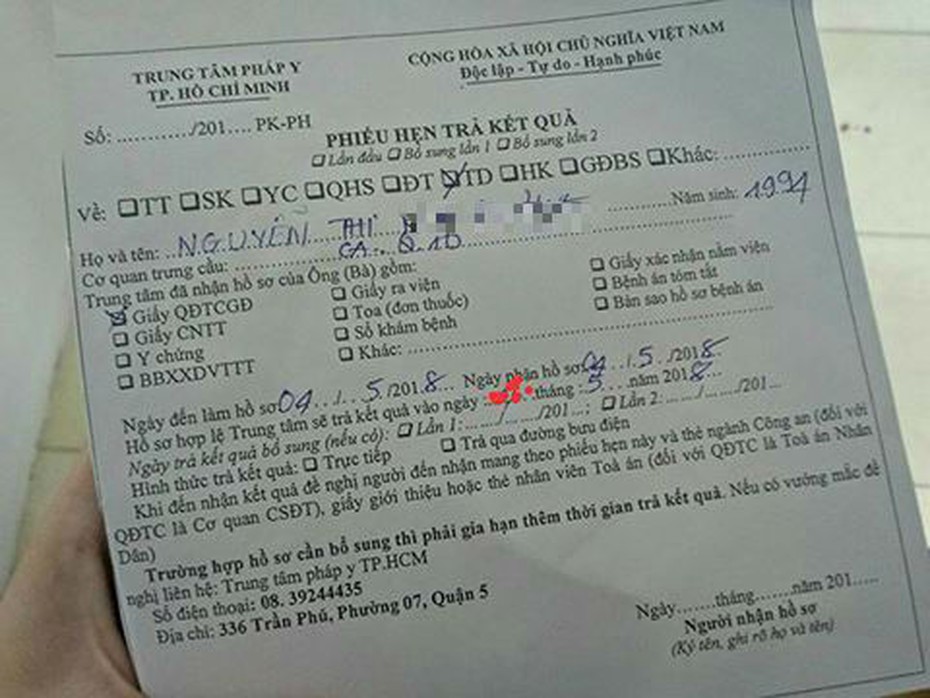 TRUNG TÂM PHÁP Y
TP. HỒ CHÍ MINH
CỘNG HÒA XÃ HỘI CHỦ NGHĨA VIỆT NAM
Độc lập - Tự do - Hạnh phúc
Số: .........../201.... PK-PH
PHIẾU HẸN TRẢ KẾT QUẢ
❑ Lần đầu ❑ Bổ sung lần 1 ❑ Bổ sung lần 2
Về: ❑TT ❑SK ❑YC ❑QHS ❑ĐT ☑TD ❑HK ❑GĐBS ❑Khác: ..............
Họ và tên: ..NGUYỄN THỊ .......... Năm sinh: 1994
Cơ quan trưng cầu: .......... CA. Q.10 ..........
Trung tâm đã nhận hồ sơ của Ông (Bà) gồm:
☑ Giấy QĐTCGĐ ❑ Giấy ra viện ❑ Giấy xác nhận nằm viện
❑ Giấy CNTT ❑ Toa (đơn thuốc) ❑ Bệnh án tóm tắt
❑ Y chứng ❑ Sổ khám bệnh ❑ Bản sao hồ sơ bệnh án
❑ BBXXDVTTT ❑ Khác: ..............................
Ngày đến làm hồ sơ 04 / 5 /2018... Ngày nhận hồ sơ 04 / 5 /2018
Hồ sơ hợp lệ Trung tâm sẽ trả kết quả vào ngày : tháng : 5 ... năm 2018...
Ngày trả kết quả bổ sung (nếu có): ❑ Lần 1: ....../....../201...; ❑ Lần 2: ....../....../201...
Hình thức trả kết quả: ❑ Trực tiếp ❑ Trả qua đường bưu điện
Khi đến nhận kết quả đề nghị người đến nhận mang theo phiếu hẹn này và thẻ ngành Công an (đối với
QĐTC là Cơ quan CSĐT), giấy giới thiệu hoặc thẻ nhân viên Toà án (đối với QĐTC là Toà án Nhân
Dân)
Trường hợp hồ sơ cần bổ sung thì phải gia hạn thêm thời gian trả kết quả. Nếu có vướng mắc đề
nghị liên hệ: Trung tâm pháp y TP.HCM
Số điện thoại: 08. 39244435
Địa chỉ: 336 Trần Phú, Phường 07, Quận 5
Ngày.......tháng........năm 201.....
Người nhận hồ sơ
(Ký tên, ghi rõ họ và tên)